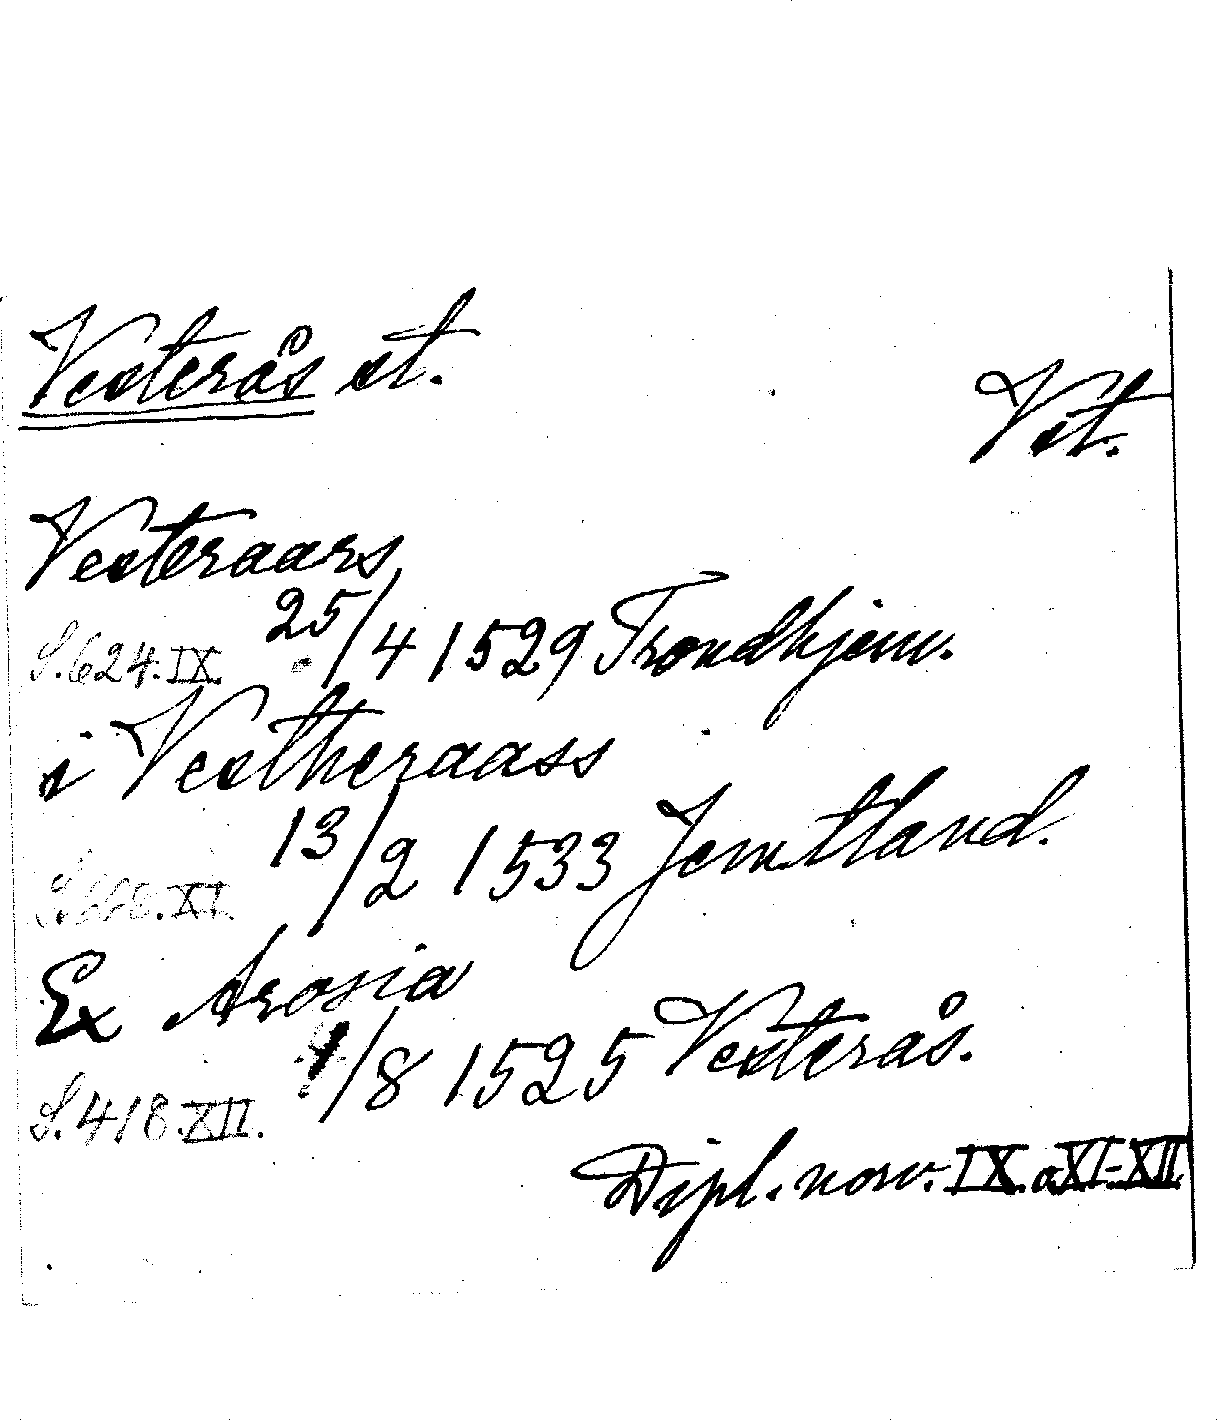 Vesterås st.
Vst.
Vesteraars
S. 624. IX. 25/4 1529 Trondhjem.
i Vestheraass
XI. 13/2 1533 Jemtland.
Ex Arosia
S. 418. XII. 1/8 1525 Vesterås.
Dipl. norv. IX. o. XI-XII.